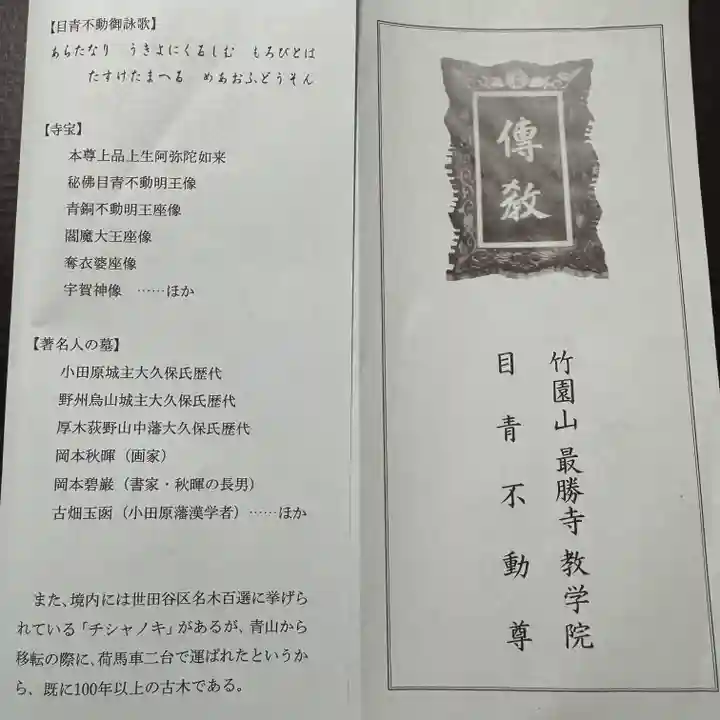 【目青不動御詠歌】
あらたなり　うきよにくるしむ　もろびとは
たすけたまへる　めあおふどうそん
【寺宝】
本尊上品上生阿弥陀如来
秘佛目青不動明王像
青銅不動明王座像
閻魔大王座像
奪衣婆座像
宇賀神像　……ほか
【著名人の墓】
小田原城主大久保氏歴代
野州烏山城主大久保氏歴代
厚木荻野山中藩大久保氏歴代
岡本秋暉（画家）
岡本碧巌（書家・秋暉の長男）
古畑玉函（小田原藩漢学者）……ほか
また、境内には世田谷区名木百選に挙げら
れている「チシャノキ」があるが、青山から
移転の際に、荷馬車二台で運ばれたというか
ら、既に100年以上の古木である。
傳教
竹園山 最勝寺 教学院
目青不動尊